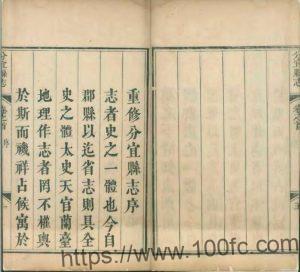 重修分宜縣志序
志者史之一體也今自
郡縣以迄省志則具全
史之體太史天官蘭臺
地理作志者罔不權輿
於斯而禨祥占候寓於
分宜縣志
序
分宜縣志
https://www.100fc.com